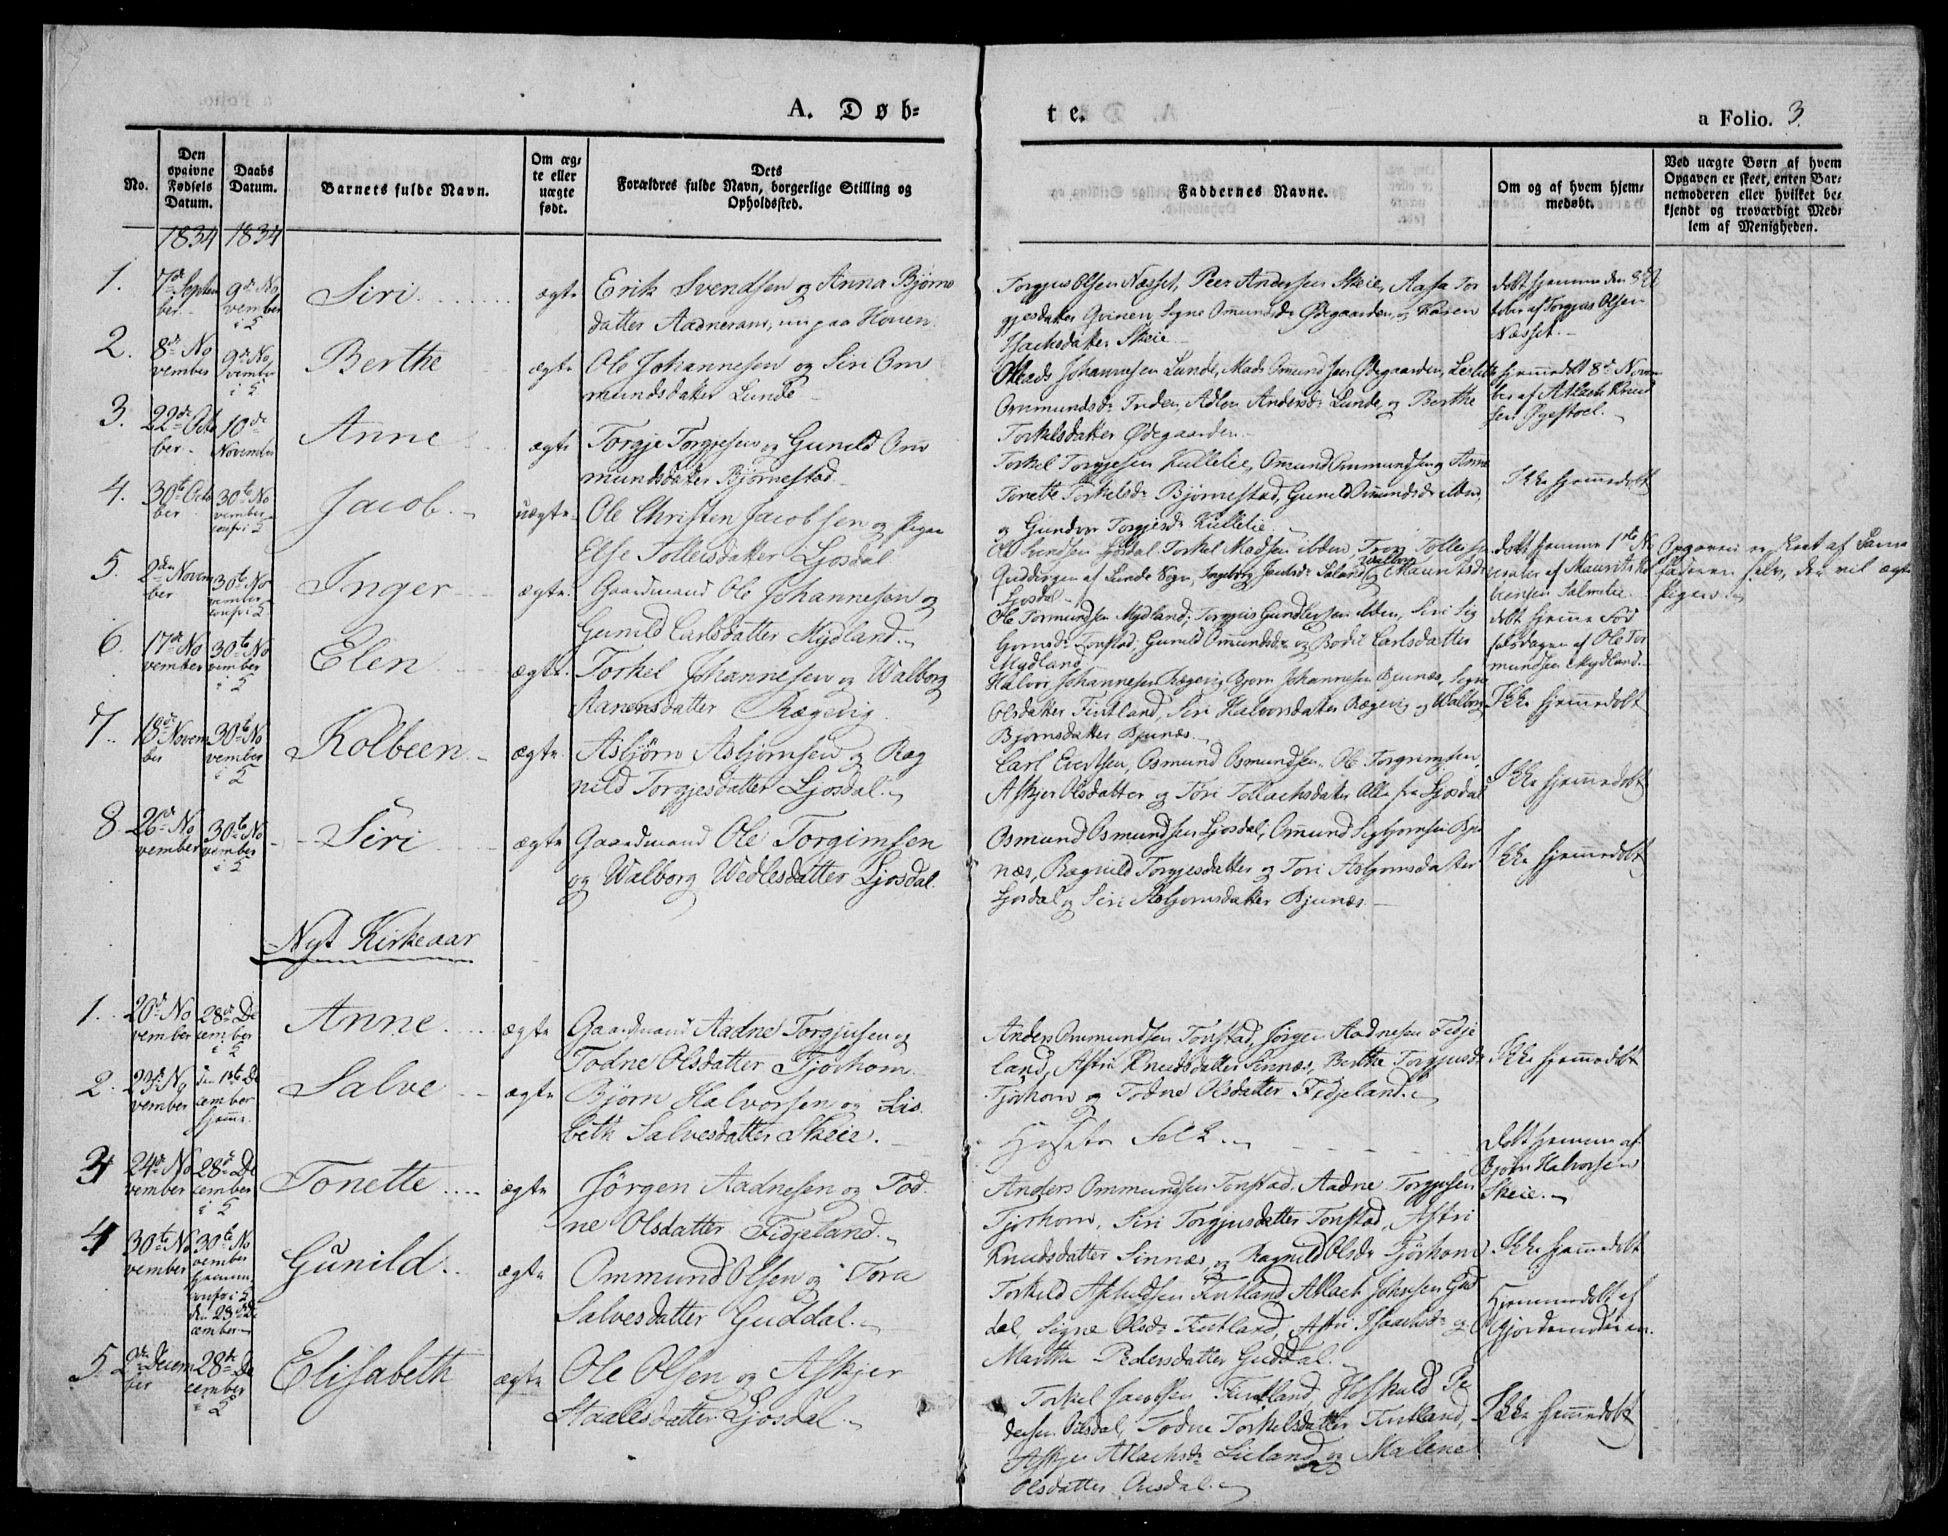 A. Døb-
te.
a Folio. 3.
No.
Den opgivne Fødsels Datum.
Daabs Datum.
Barnets fulde Navn.
Om ægte eller uægte født.
Dets Forældres fulde Navn, borgerlige Stilling og Opholdssted.
Faddernes Navne.
Om og af hvem hjemmedøbt.
Ved uægte Børn af hvem
Opgaven er skeet, enten Bar-
nemoderen eller hvilket be-
kjendt og troværdigt Med-
lem af Menigheden.
1834 1834
1.
7de Septem
ber
9de No
vember
i 2
Siri
ægte
Erik Svendsen og Anna Bjørns
datter Aadneram,
Torgjus Olsen Næsset, Peer Andersen Skeie, Aasa Tor
gjesdatter Qvinen, Signe Omundsdr Ødegaarden, og Karen
Isachsdatter Skeie
døbt hjemme den 8de
af Torgjus Olsen
Næsset.
2.
8de No
vember
9de No
vember
i 2
Berthe
ægte
Ole Johannesen og Siri Om
mundsdatter Lunde
Johannesen Lunde, Mads Omundsen Ødegaarden,
Ommundsdr Anders Lunde, og Berthe
Torkelsdatter Ødegaarden
hjemmedøbt 8de Novem
ber af Atlach Knud
sen
3.
22de Octo
ber
10de
November
Anne
ægte
Torgje Torgjesen og Gunild Om
mundsdatter Bjørnestad
Torkel Torgjesen Kullelie, Omund Ommundsen, Anne
Tonette Torkelsdr Bjørnestad, Gunild Omundsdr ibden,
og Gundvor Torgjesdr Kullelie.
Ikke hjemmedøbt
4.
30te Octo
ber
30te No
vember
conf: i 2
Jacob
uægte
Ole Christen Jacobsen og Pigen
Else Tollefsdatter Ljosdal
Ole Svendsen Ljosdal, Torkel Madsen ibden, Tron Tollefsen
af Lunde Sogn, Ingeborg
Ljosdal
døbt hjemme 1ste No
vember af Maurits
Salmelie
Opgaven er skeet af Barne
faderen selv, der vil ægte
Pigen
5.
2den Novem
ber
30te No
vember
conf: i 2
Inger
ægte
Gaardmand Ole Johannesen og
Gunild Carlsdatter Mydland.
Ole Tormundsen Mydland, Torgjus Gundersen ibden, Siri Sig
Tonstad, Gunild Omundsdr og Bodil Carlsdatter
Mydland
døbt hjemme Fød
selsdagen af Ole Tor
mundsen Mydland.
6.
17de No
vember
30te No
vember
i 2
Elen
ægte
Torkel Johannesen og Walborg
Aanensdatter Rægevig
Halvor Johannesen Rægevig, Bjørn Johannesen Bjunæs, Signe
Olsdatter Fintland, Siri Halvorsdatter Rægevig og Walborg
Bjørnsdatter Bjunæs.
Ikke hjemmedøbt
7.
18de Novem
ber
30te No
vember
i 2
Kolbeen
ægte
Asbjørn Asbjørnsen og Rag
nild Torgjesdatter Ljosdal.
Carl Evertsen, Osmund Osmundsen, Ole Torgrimsen,
Askjer Olsdatter og Tore Tollachsdatter Alle fra Ljosdal
Ikke hjemmedøbt
8.
26de No
vember
30te No
vember
i 2
Siri
ægte
Gaardmand Ole Torgimsen
og Walborg Wedlesdatter Ljosdal.
Osmund Osmundsen Ljosdal, Omund Sigbjørnsen Bju
næs, Ragnild Torgjesdatter og Tori Asbjørnsdatter
Ljosdal og Siri Asbjørnsdatter Bjunæs
Ikke hjemmedøbt
Nyt Kirkeaar
1.
20de No
vember
28de De
cember
i 2
Anne
ægte
Gaardmand Aadne Torgjusen og
Todne Olsdatter Tjorhom
Anders Ommundsen Tonstad, Jørgen Aadnesen Fidje
land, Astri Knudsdatter Sinnæs, Berthe Torgjusdr
Tjorhom og Todne Olsdatter Fidjeland.
Ikke hjemmedøbt
2.
23de No
vember
den 1ste De
cember
hjemme
Salve
ægte
Bjørn Halvorsen og Lis
beth Salvesdatter Skeie.
døbt hjemme af
Bjørn Halvorsen
Skeie.
3
24de No
vember
28de De
cember
i 2
Tonette
ægte
Jørgen Aadnesen og Tod
ne Olsdatter Fidjeland.
Anders Ommundsen Tonstad, Aadne Torgjusen
Tjorhom, Siri Torgjusdatter Tonstad, Astri
Knudsdatter Sinnæs og Ragnild Olsdr Tjørhom
Ikke hjemmedøbt
4
30te No
vember
30te No
vember
hjemme,
conf: i 2
den 28de De
cember
Gunild
ægte
Ommund Olsen og Tora
Salvesdatter Guddal.
Torkild Aslaksen Fintland, Atlach Johnsen Gud
dal, Signe Olsdr Fintland, Astri Isaachsdr og
Marthe Pedersdatter Guddal.
Hjemmedøbt af
Gjordemoderen.
5.
2den Decem
ber
28de De
cember
i 2
Elisabeth
ægte
Ole Olsen og Askjer
Staalesdatter Ljosdal.
Torkel Jacobsen Fintland, Høskuld Pe
dersen Øksdal, Todne Torkelsdatter Fintland,
Askjer Atlachsdr Lieland og Malene
Olsdatter Ousdal.
Ikke hjemmedøbt